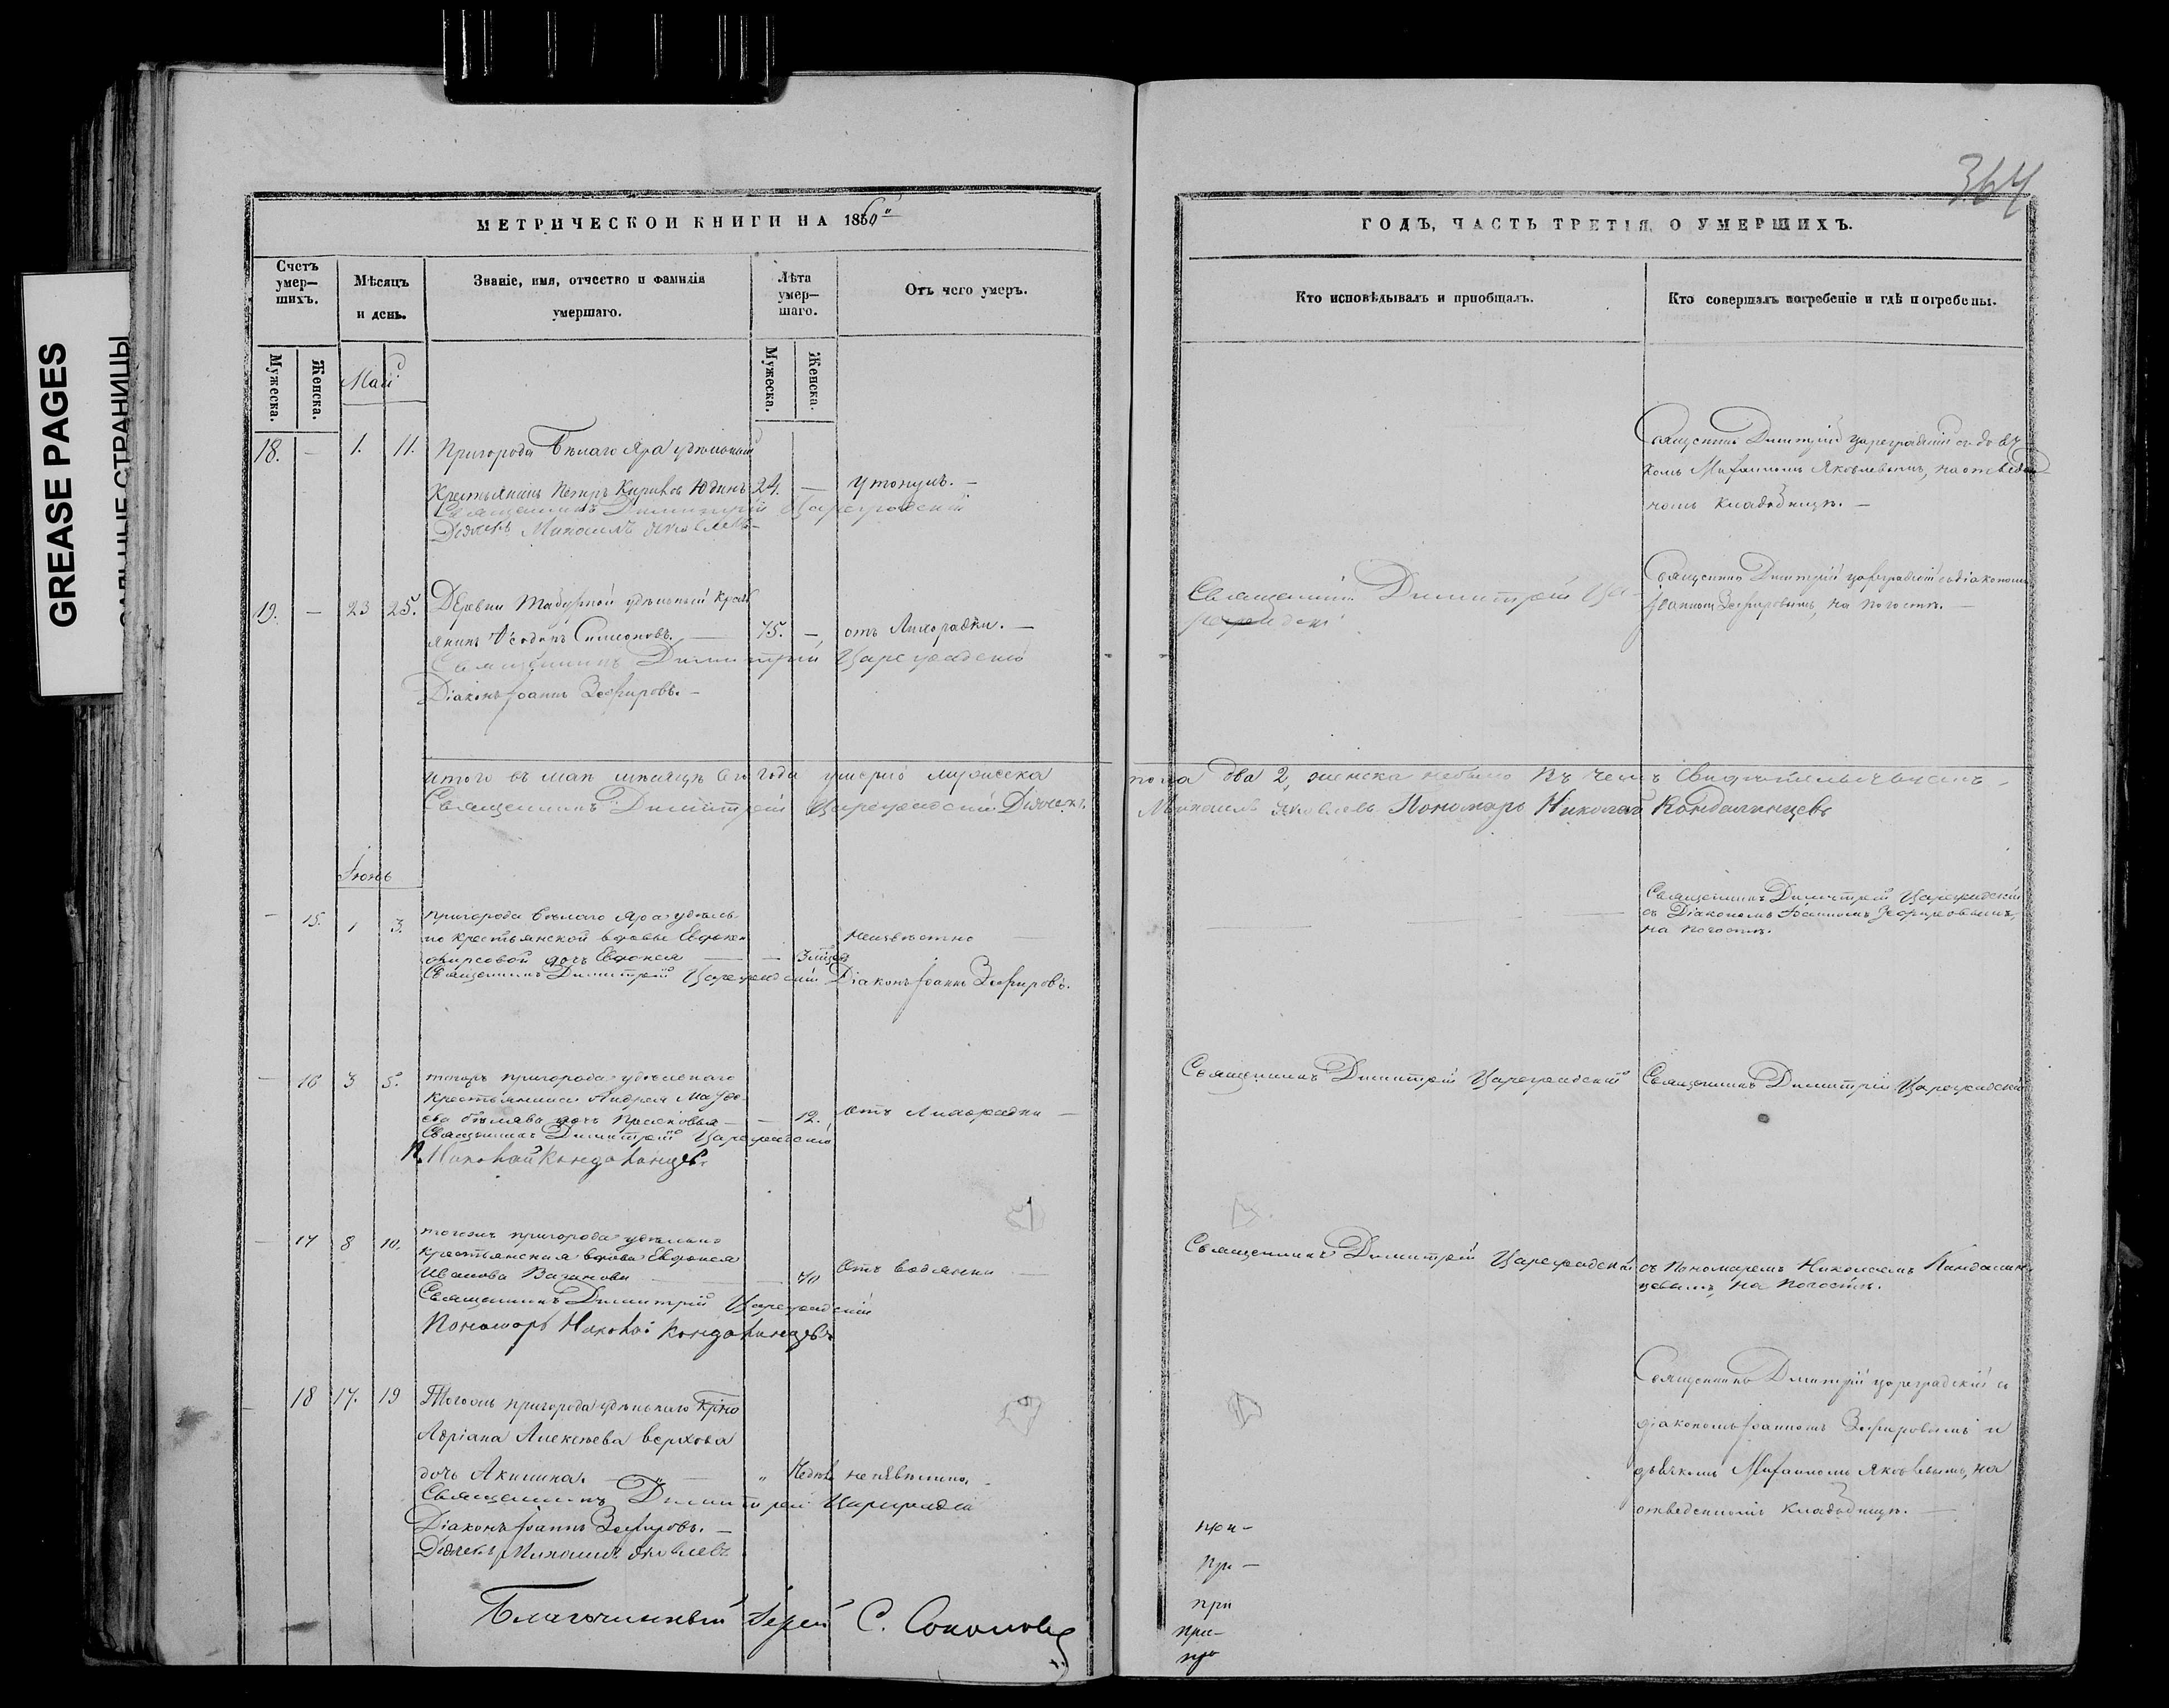 GREASE PAGES
САЛЬНЫЕ СТРАНИЦЫ
364
МЕТРИЧЕСКОЙ КНИГИ НА 1860
ГОДЪ, ЧАСТЬ ТРЕТІЯ, О УМЕРШИХЪ.
Счетъ умер—шихъ.
Мѣсяцъ и день.
Званіе, имя, отчество и фамилія умершаго.
Лѣта умер—шаго.
Отъ чего умеръ.
Кто исповѣдывалъ и пріобщалъ.
Кто совершалъ погребеніе и гдѣ погребены.
Мужеска.
Женска.
Мужеска.
Женска.
Май
18. — 1. 11. Пригорода Бѣлаго Яра удѣльный
Крестьянинъ Петръ Кириловъ Юдинъ 24. — утонулъ. —
Священникъ Димитрій Цареградскій
Дьячекъ Михаилъ Яковлевъ —
Священникъ Димитрій Цареградскій съ дьяч
комъ Михаиломъ Яковлевымъ, на отведен
номъ кладбищѣ. —
19. — 23 25. Деревни удѣльный крест
янинъ Ѳеодоръ Симеоновъ. — 75. — отъ лихорадки. —
Священникъ Димитрій Цареградскій
Діаконъ Іоаннъ Зефировъ. —
Священникъ Димитрій Ца-
реградскій
Священникъ Димитрій Цареградскій съ діакономъ
Іоанномъ Зефировымъ, на погостѣ. —
Итого въ маѣ мѣсяцѣ сего года умерло мужеска пола два 2, женска не было въ чемъ свидѣтельствуемъ
Священникъ Димитрій Цареградскій Дьячекъ Михаилъ Яковлевъ Пономарь Николай Кандалинцевъ
Іюнь
— 15. 1 3. пригорода Бѣлаго Яра удѣль
но крестьянской вдовы
дочь Евдокія — — 3 мѣсяц неизвѣстно —
Священникъ Димитрій Цареградскій Діаконъ Іоаннъ Зефировъ.
Священникъ Димитрій Цареградскій
съ Діакономъ Іоанномъ Зефировымъ,
на погостѣ.
— 16 3 5. тогожъ пригорода удѣльнаго
крестьянина Андрея
дочь — — 12. отъ лихорадки —
Священникъ Димитрій Цареградскій
П. Николай Кандалинцевъ
Священникъ Димитрій Цареградскій
Священникъ Димитрій Цареградскій
— 17 8 10. тогожъ пригорода удѣльно
крестьянская вдова Евдокія
Иванова — — 70 отъ водянки —
Священникъ Димитрій Цареградскій
Пономарь Николай Кандалинцевъ
Священникъ Димитрій Цареградскій
съ Пономаремъ Николаемъ Кандалин
цевымъ, на погостѣ.
— 18 17. 19 Тогожъ пригорода удѣльнаго
Адріана Алексѣева
дочь Акилина. — неизвѣстно.
Священникъ Димитрій Цареградскій
Діаконъ Іоаннъ Зефировъ. —
Дьячекъ Михаилъ Яковлевъ
Священникъ Димитрій Цареградскій съ
діакономъ Іоанномъ Зефировымъ и
дьячкомъ Михаиломъ Яковлевымъ, на
отведенномъ кладбищѣ. —
при —
при —
при
при —
пр
Благочинный Іерей С. Соколовъ